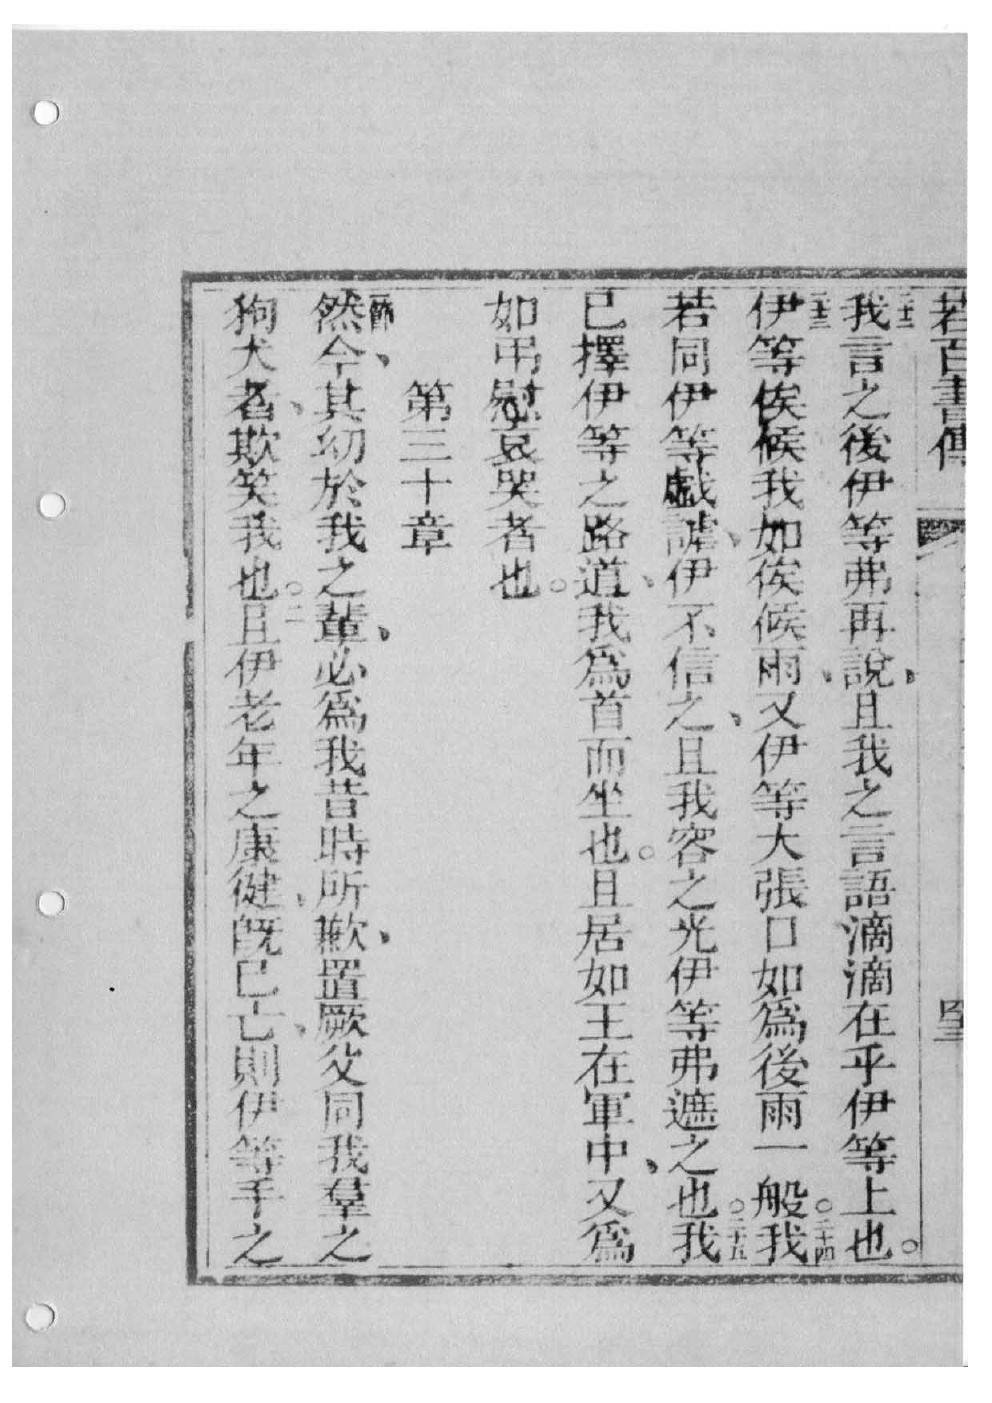 若百書傳
二十二我言之後伊等弗再說、且我之言語滴滴在乎伊等上也。
二十三伊等俟候我如俟候雨、又伊等大張口如為後雨一般。二十四我
若同伊等戲謔、伊不信之、且我容之光伊等弗遮之也。二十五我
已擇伊等之路道、我為首而坐也。且居如王在軍中、又為
如弔慰哀哭者也。
第三十章
一節然今、其幼於我之輩、必為我昔時所歉、置厥父同我羣之
狗犬者、欺笑我也。二且伊老年之康健、既已亡、則伊等手之